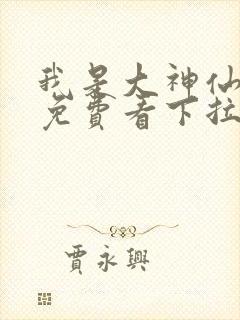 我是大神仙
免費看下拉
賈永興